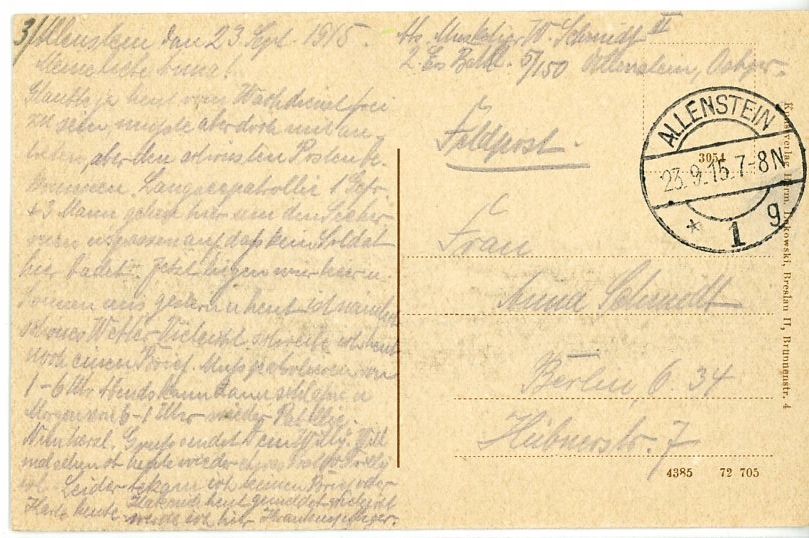 3/Allenstein den 23. Sept. 1915.
Meine liebe Anna!
Glaubte ja heut vom Wachdienst frei
zu sein, mußte aber doch mit an-
treten, aber den schönsten Posten be-
kommen. Langseepatrollie 1 Gefr.
+ 3 Mann gehen hier um den See her-
um u. passen auf daß kein Soldat
hier badet. Jetzt liegen wir hier u.
sonnen uns gestern u heut ist
schönes Wetter. Vielleicht schreibe ich heut
noch einen Brief. Muß patrollieren von
1-6 Uhr Abends kann dann schlafen u
Morgen von 6-1 Uhr wieder Patrollie.
Gruß sendet Dein Willy. Will
mal sehen ob heute wieder etwas
ist. Leider bekam ich keinen Brief oder
Karte heute. heut gemeldet vielleicht
werde ich hier Krankenpfleger.
Abs. Musketier W. Schmidt II
2. Ers. Batl. 5/150 Allenstein, Ostpr.
Feldpost.
ALLENSTEIN
23.9.15.7-8N
* 1 g
3054
Frau
Anna Schmidt
Berlin, O. 34
Hübnerstr. 7
4385 72 705
Kunstverlag Herm. Lukowski, Breslau II, Brunnenstr. 4